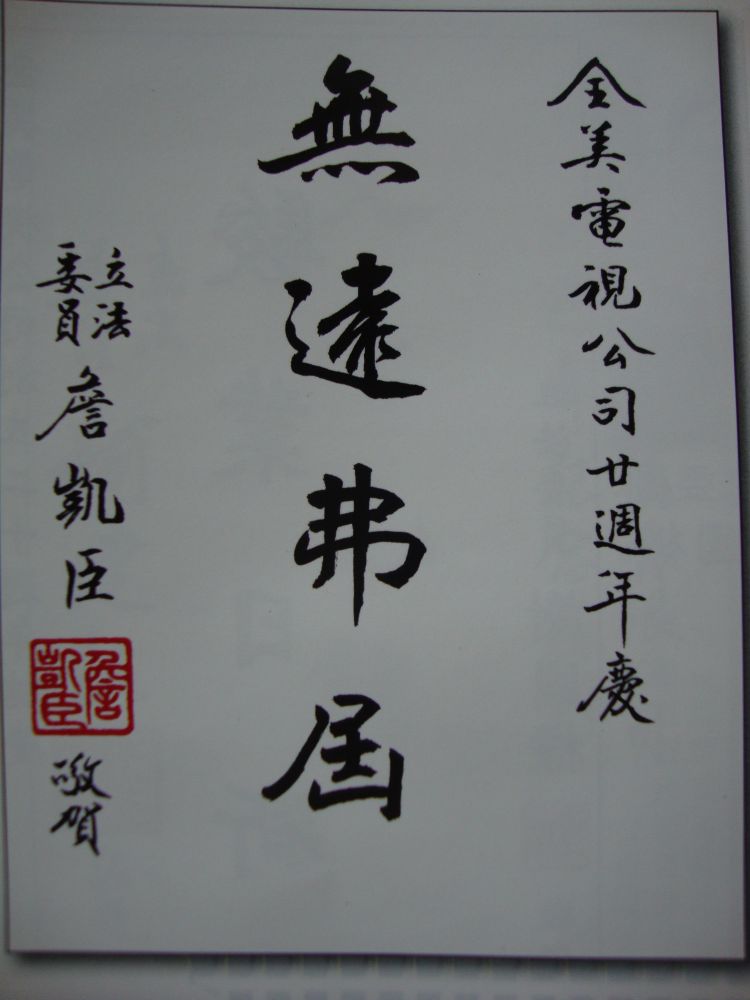 全美電視公司廿週年慶
無遠弗屆
立法
委員
詹凱臣
詹凱臣
敬賀